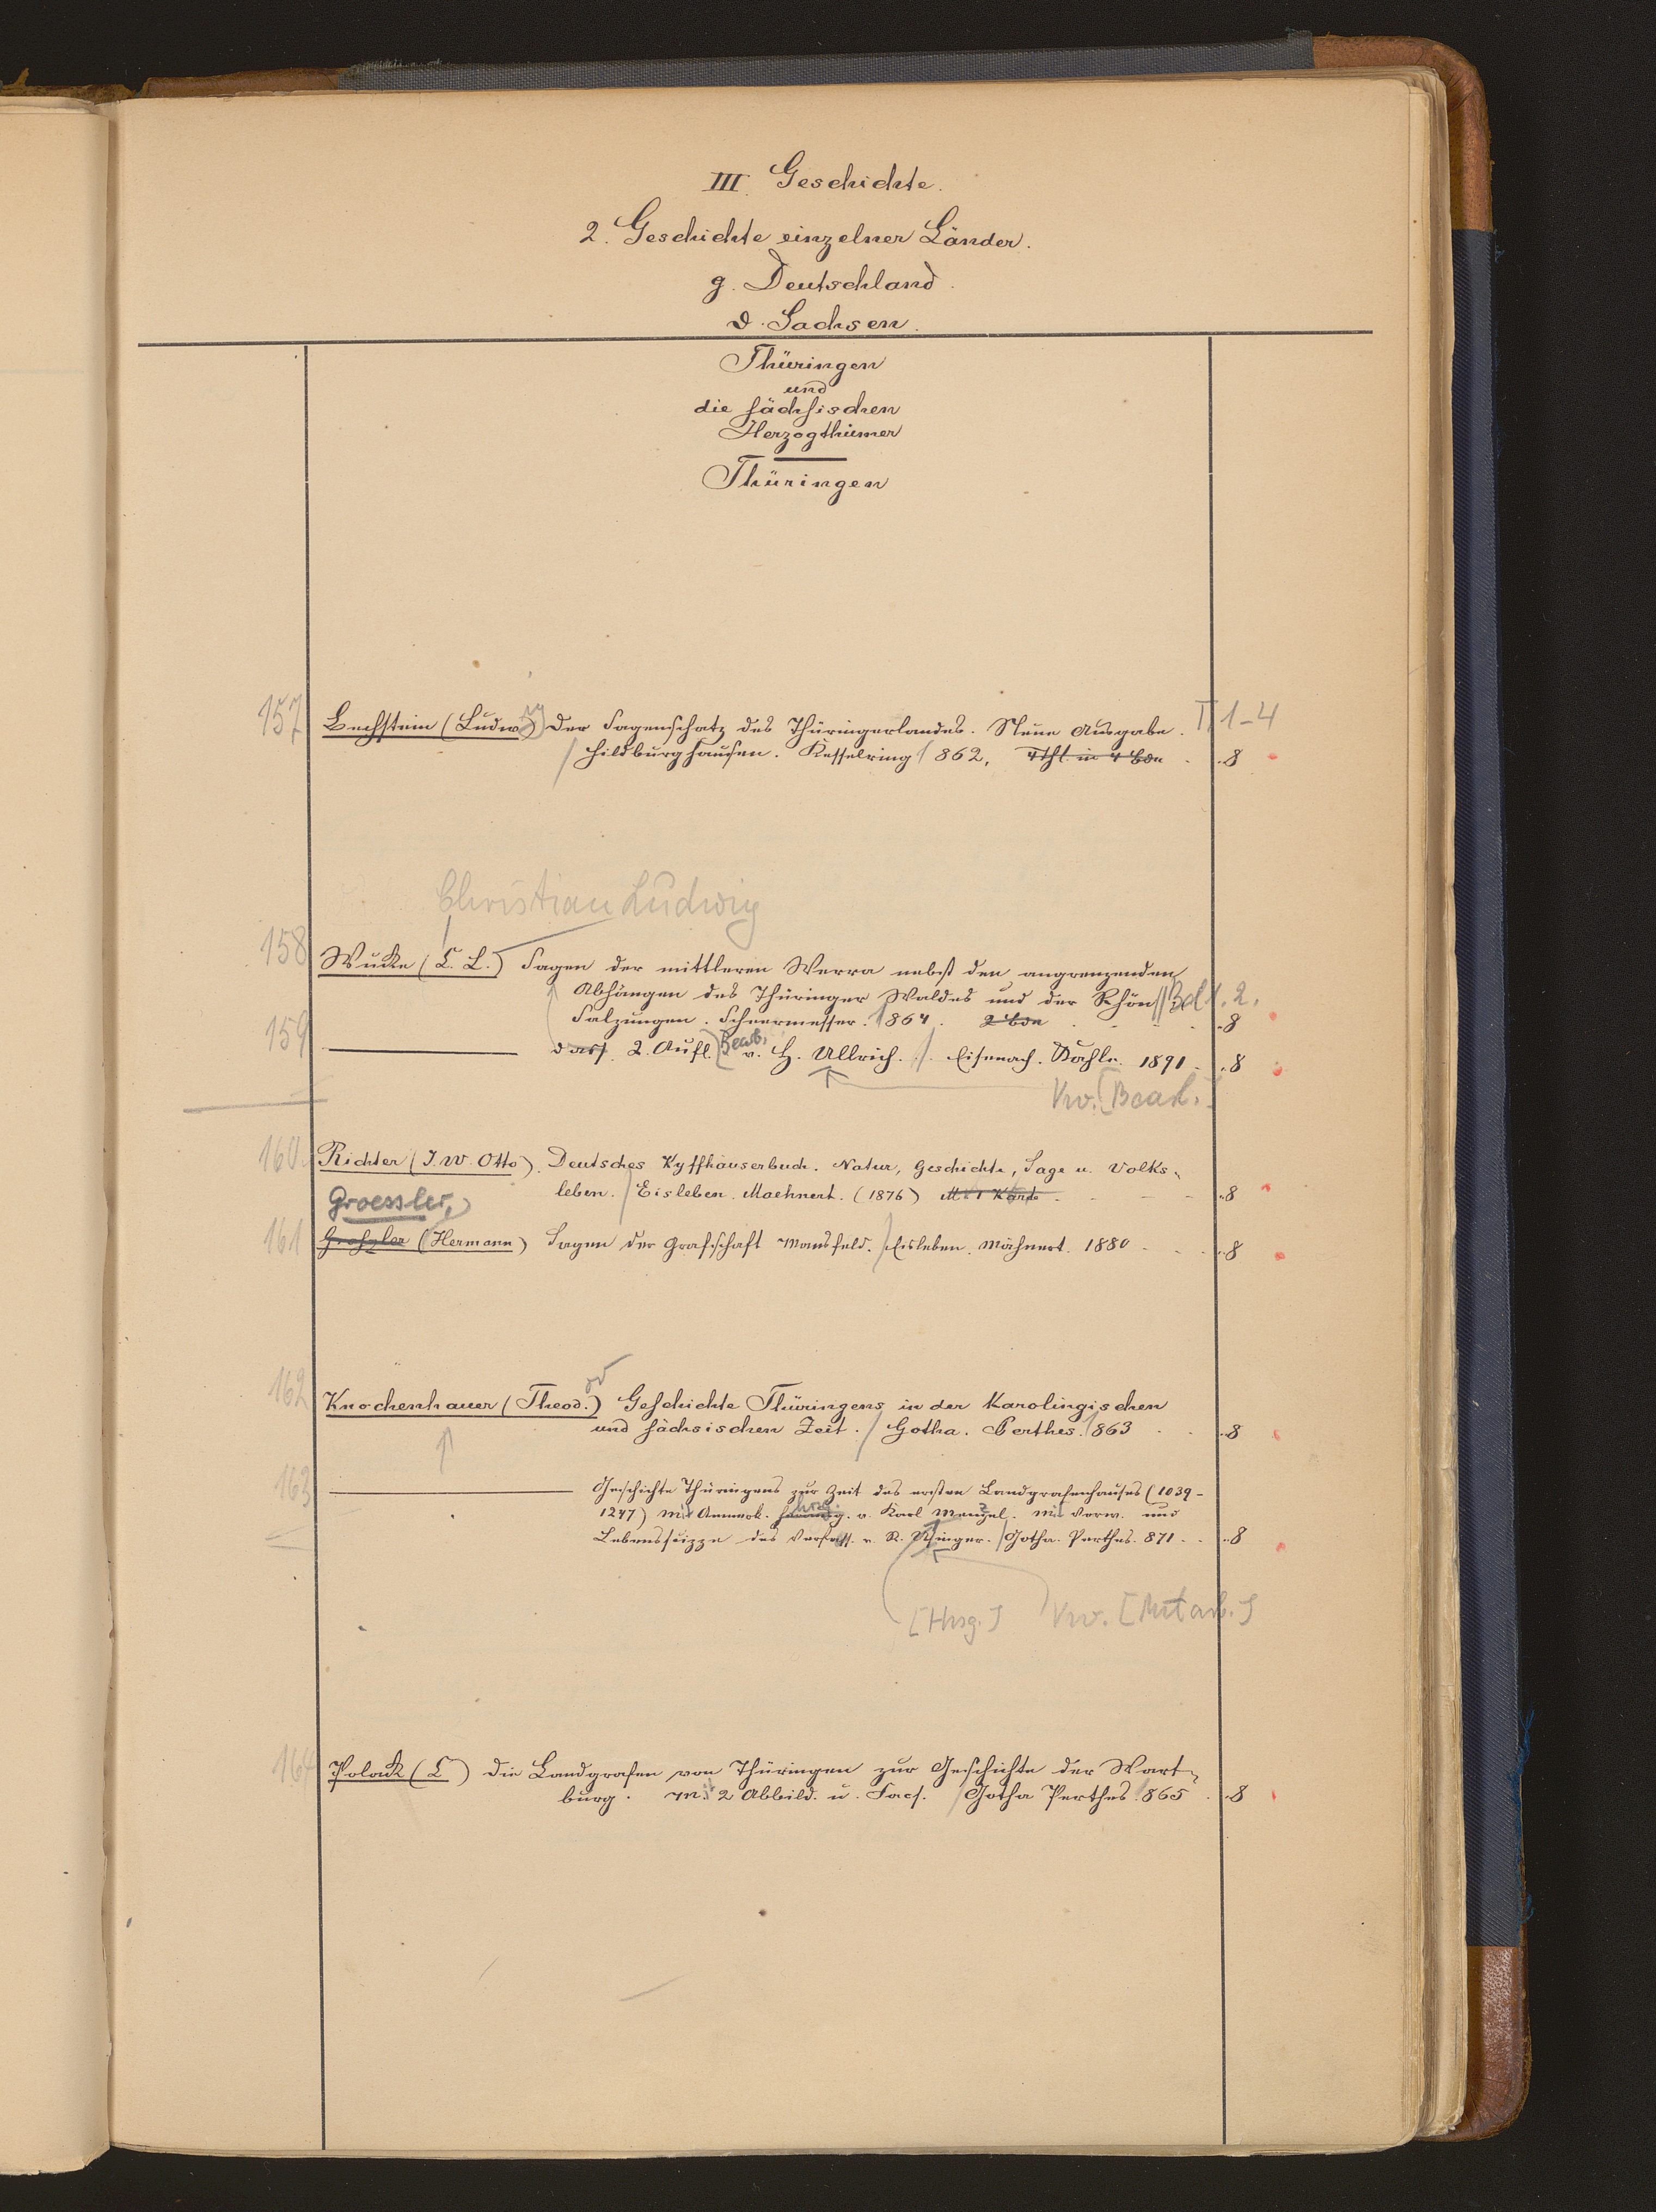 III. Geschichte.
2. Geschichte einzelner Länder.
g. Deutschland.
d. Sachsen.
Thüringen
und
die sächsischen
Herzogthümer
Thüringen
157 Bechstein (Ludwig) Der Sagenschatz des Thüringerlandes. Neue Ausgabe. T. 1-4
Hildburghausen. Kesselring 1862, 4 Thl. in 4 Bdn . 8
Christian Ludwig
158 Wucke (C. L.) Sagen der mittleren Werra nebst den angrenzenden
Abhängen des Thüringer Waldes und der Rhön Bd 1. 2.
Salzungen. Scheermesser. 1864. 2 Bde . . . 8
159 dass. 2. Aufl. Bearb. v. H. Ullrich. Eisenach. Kahle. 1891 . . 8
Vw. [Bearb.]
160 Richter (J. W. Otto). Deutsches Kyffhäuserbuch. Natur, Geschichte, Sage u. Volks-
leben. Eisleben. Maehnert. (1876) M. 1 Karte . . 8
Groessler,
161 Groszler (Hermann) Sagen der Grafschaft Mansfeld. Eisleben. Mähnert. 1880 . . 8
162 Knochenhauer (Theod.) or Geschichte Thüringens in der Karolingischen
und sächsischen Zeit. Gotha. Perthes. 1863 . . 8
163 Geschichte Thüringens zur Zeit des ersten Landgrafenhauses (1039-
1247) Mit Anmerk. herausg. hrsg. v. Karl Menzel. Mit Vorw. und
Lebensskizze des Verfass. v. R. Usinger. Gotha. Perthes. 871 . . 8
[Hrsg.] Vw. [Mitarb.]
164 Polack (C) Die Landgrafen von Thüringen zur Geschichte der Wart-
burg. Mit 2 Abbild. u. Facs. Gotha Perthes 1865 . 8